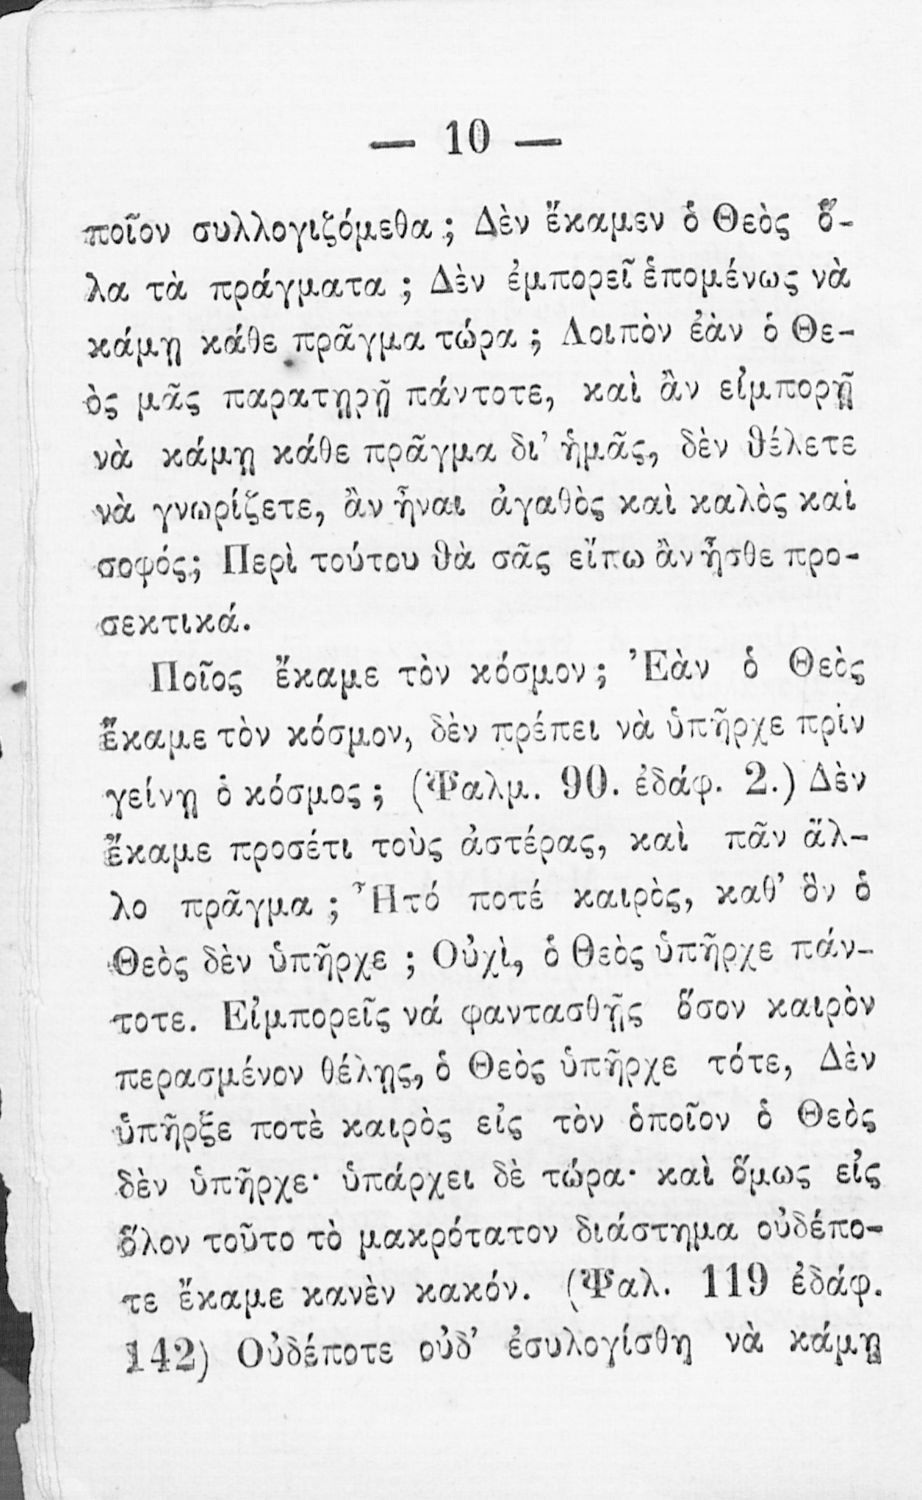 — 10 —
ποῖον συλλογιζόμεθα ; Δὲν ἔκαμεν ὁ Θεὸς ὅ-
λα τὰ πράγματα ; Δὲν ἐμπορεῖ ἑπομένως νὰ
κάμῃ κάθε πρᾶγμα τώρα ; Λοιπὸν ἐὰν ὁ Θε-
ὸς μᾶς παρατηρῇ πάντοτε, καὶ ἂν εἰμπορῇ
νὰ κάμῃ κάθε πρᾶγμα δι’ ἡμᾶς, δὲν θέλετε
νὰ γνωρίζετε, ἂν ἦναι ἀγαθὸς καὶ καλὸς καὶ
σοφός; Περὶ τούτου θὰ σᾶς εἴπω ἂν ἦσθε προ-
σεκτικά.
Ποῖος ἔκαμε τὸν κόσμον ; Ἐὰν ὁ Θεὸς
ἔκαμε τὸν κόσμον, δὲν πρέπει νὰ ὑπῆρχε πρὶν
γείνῃ ὁ κόσμος ; (Ψαλμ. 90. ἐδάφ. 2.) Δὲν
ἔκαμε προσέτι τοὺς ἀστέρας, καὶ πᾶν ἄλ-
λο πρᾶγμα ; Ἦτό ποτέ καιρὸς, καθ’ ὃν ὁ
Θεὸς δὲν ὑπῆρχε ; Οὐχὶ, ὁ Θεὸς ὑπῆρχε πάν-
τοτε. Εἰμπορεῖς νά φαντασθῇς ὅσον καιρὸν
περασμένον θέλῃς, ὁ Θεὸς ὑπῆρχε τότε, Δὲν
ὑπῆρξε ποτὲ καιρὸς εἰς τὸν ὁποῖον ὁ Θεὸς
δὲν ὑπῆρχε· ὑπάρχει δὲ τώρα· καὶ ὅμως εἰς
ὅλον τοῦτο τὸ μακρότατον διάστημα οὐδέπο-
τε ἔκαμε κανὲν κακόν. (Ψαλ. 119 ἐδάφ.
142) Οὐδέποτε οὐδ’ ἐσυλογίσθη νὰ κάμῃ